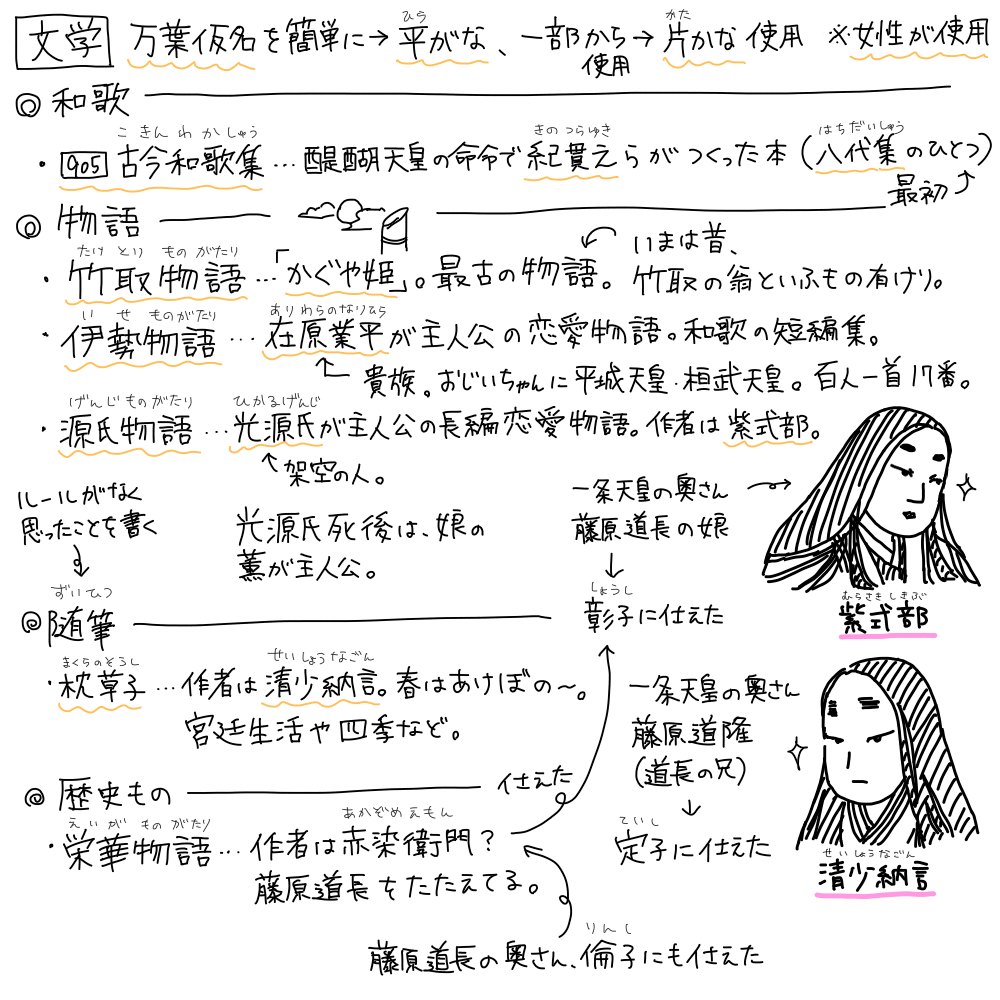 文学 万葉仮名を簡単に→平がな、一部から→片かな使用 ※女性が使用
ひら かた
使用
◎和歌
こきんわかしゅう きのつらゆき はちだいしゅう
・905 古今和歌集…醍醐天皇の命令で紀貫之らがつくった本(八代集のひとつ)
最初
◎物語
たけとりものがたり
いまは昔、
・竹取物語…「かぐや姫」。最古の物語。竹取の翁といふもの有けり。
いせものがたり ありわらのなりひら
・伊勢物語…在原業平が主人公の恋愛物語。和歌の短編集。
貴族。おじいちゃんに平城天皇・桓武天皇。百人一首17番。
げんじものがたり ひかるげんじ
・源氏物語…光源氏が主人公の長編恋愛物語。作者は紫式部。
架空の人。
ルールがなく
思ったことを書く
光源氏死後は、娘の
薫が主人公。
一条天皇の奥さん
藤原道長の娘
しょうし
彰子に仕えた
むらさきしきぶ
紫式部
ずいひつ
◎随筆
まくらのそうし せいしょうなごん
・枕草子…作者は清少納言。春はあけぼの〜。
宮廷生活や四季など。
一条天皇の奥さん
藤原道隆
(道長の兄)
ていし
定子に仕えた
せいしょうなごん
清少納言
◎歴史もの
仕えた
えいがものがたり あかぞめえもん
・栄華物語…作者は赤染衛門?
藤原道長をたたえてる。
りんし
藤原道長の奥さん、倫子にも仕えた